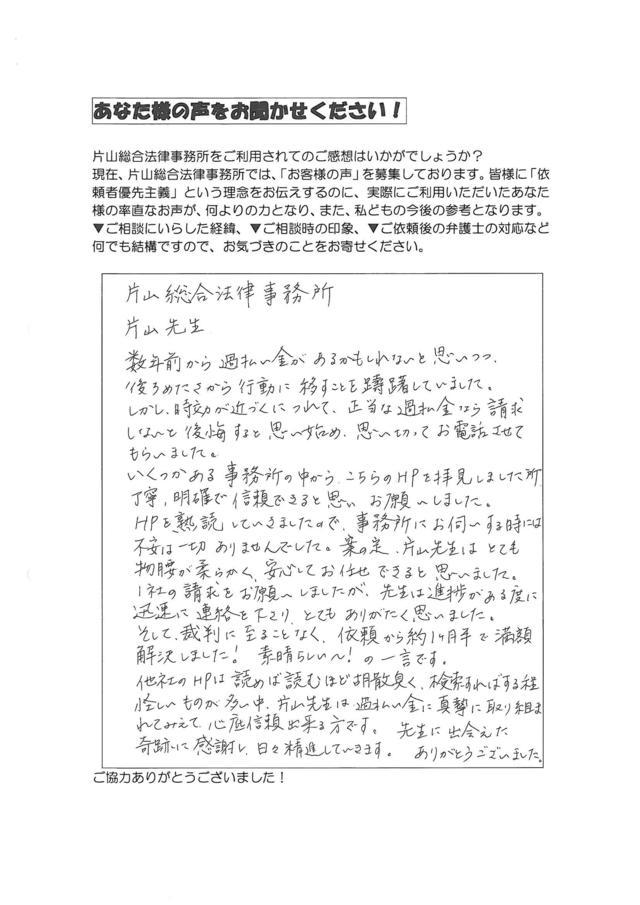 あなた様の声をお聞かせください！
片山総合法律事務所をご利用されてのご感想はいかがでしょうか？
現在、片山総合法律事務所では、「お客様の声」を募集しております。皆様に「依
頼者優先主義」という理念をお伝えするのに、実際にご利用いただいたあなた
様の率直なお声が、何よりの力となり、また、私どもの今後の参考となります。
▼ご相談にいらした経緯、▼ご相談時の印象、▼ご依頼後の弁護士の対応など
何でも結構ですので、お気づきのことをお寄せください。
片山総合法律事務所
片山先生
数年前から過払い金があるかもしれないと思いつつ、
後ろめたさから行動に移すことを躊躇していました。
しかし、時効が近づくにつれて、正当な過払金なら請求
しないと後悔すると思い始め、思い切ってお電話させて
もらいました。
いくつかある事務所の中から、こちらのHPを拝見しました所
丁寧、明確で信頼できると思い お願いしました。
HPを熟読していきましたので、事務所にお伺いする時には
不安は一切ありませんでした。案の定、片山先生はとても
物腰が柔らかく、安心してお任せできると思いました。
1社の請求をお願いしましたが、先生は進捗がある度に
迅速に連絡を下さり、とてもありがたく思いました。
そして、裁判に至ることなく、依頼から約1ヶ月半で満額
解決しました！ 素晴らしい〜！の一言です。
他社のHPは読めば読むほど胡散臭く、検索すればする程
怪しいものが多い中、片山先生は過払い金に真摯に取り組ま
れてみえて、心底信頼出来る方です。 先生に出会えた
奇跡に感謝し、日々精進していきます。 ありがとうございました。
ご協力ありがとうございました！